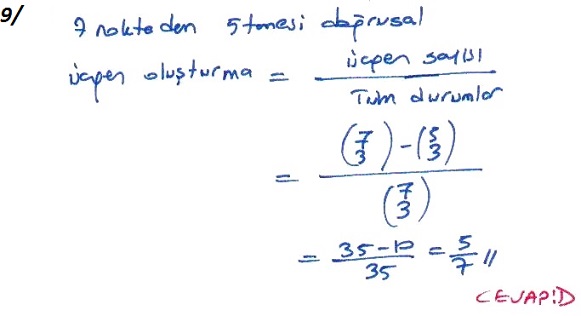 9/ 7 noktadan 5 tanesi doğrusal
üçgen oluşturma = üçgen sayısı / Tüm durumlar
= (7 3) - (5 3) / (7 3)
= 35-10 / 35 = 5/7 //
CEVAP:D